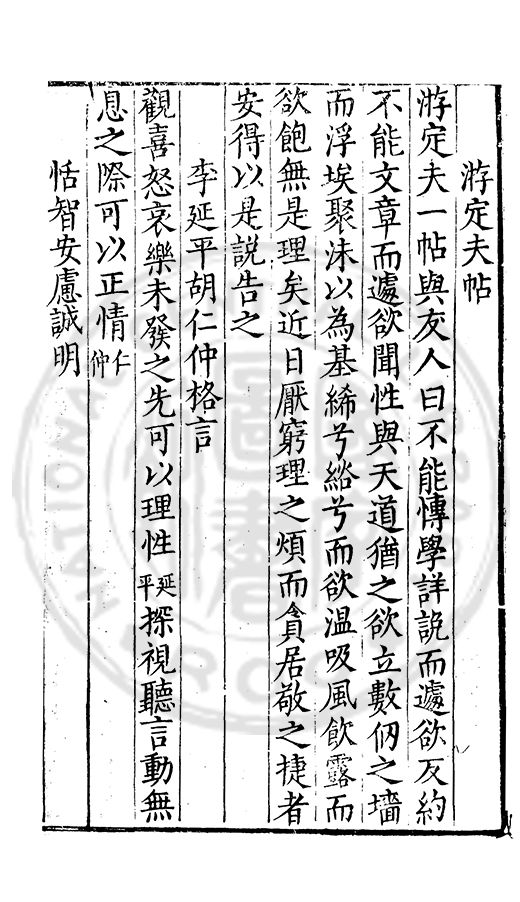 游定夫帖
游定夫一帖與友人曰不能慱學詳説而遽欲反約
不能文章而遽欲聞性與天道猶之欲立數仞之墻
而浮埃聚沫以為基絺兮綌兮而欲溫吸風飲露而
欲飽無是理矣近日厭窮理之煩而貪居敬之捷者
安得以是説告之
李延平胡仁仲格言
觀喜怒哀樂未發之先可以理性延平探視聽言動無
息之際可以正情仁仲
恬智安慮誠明